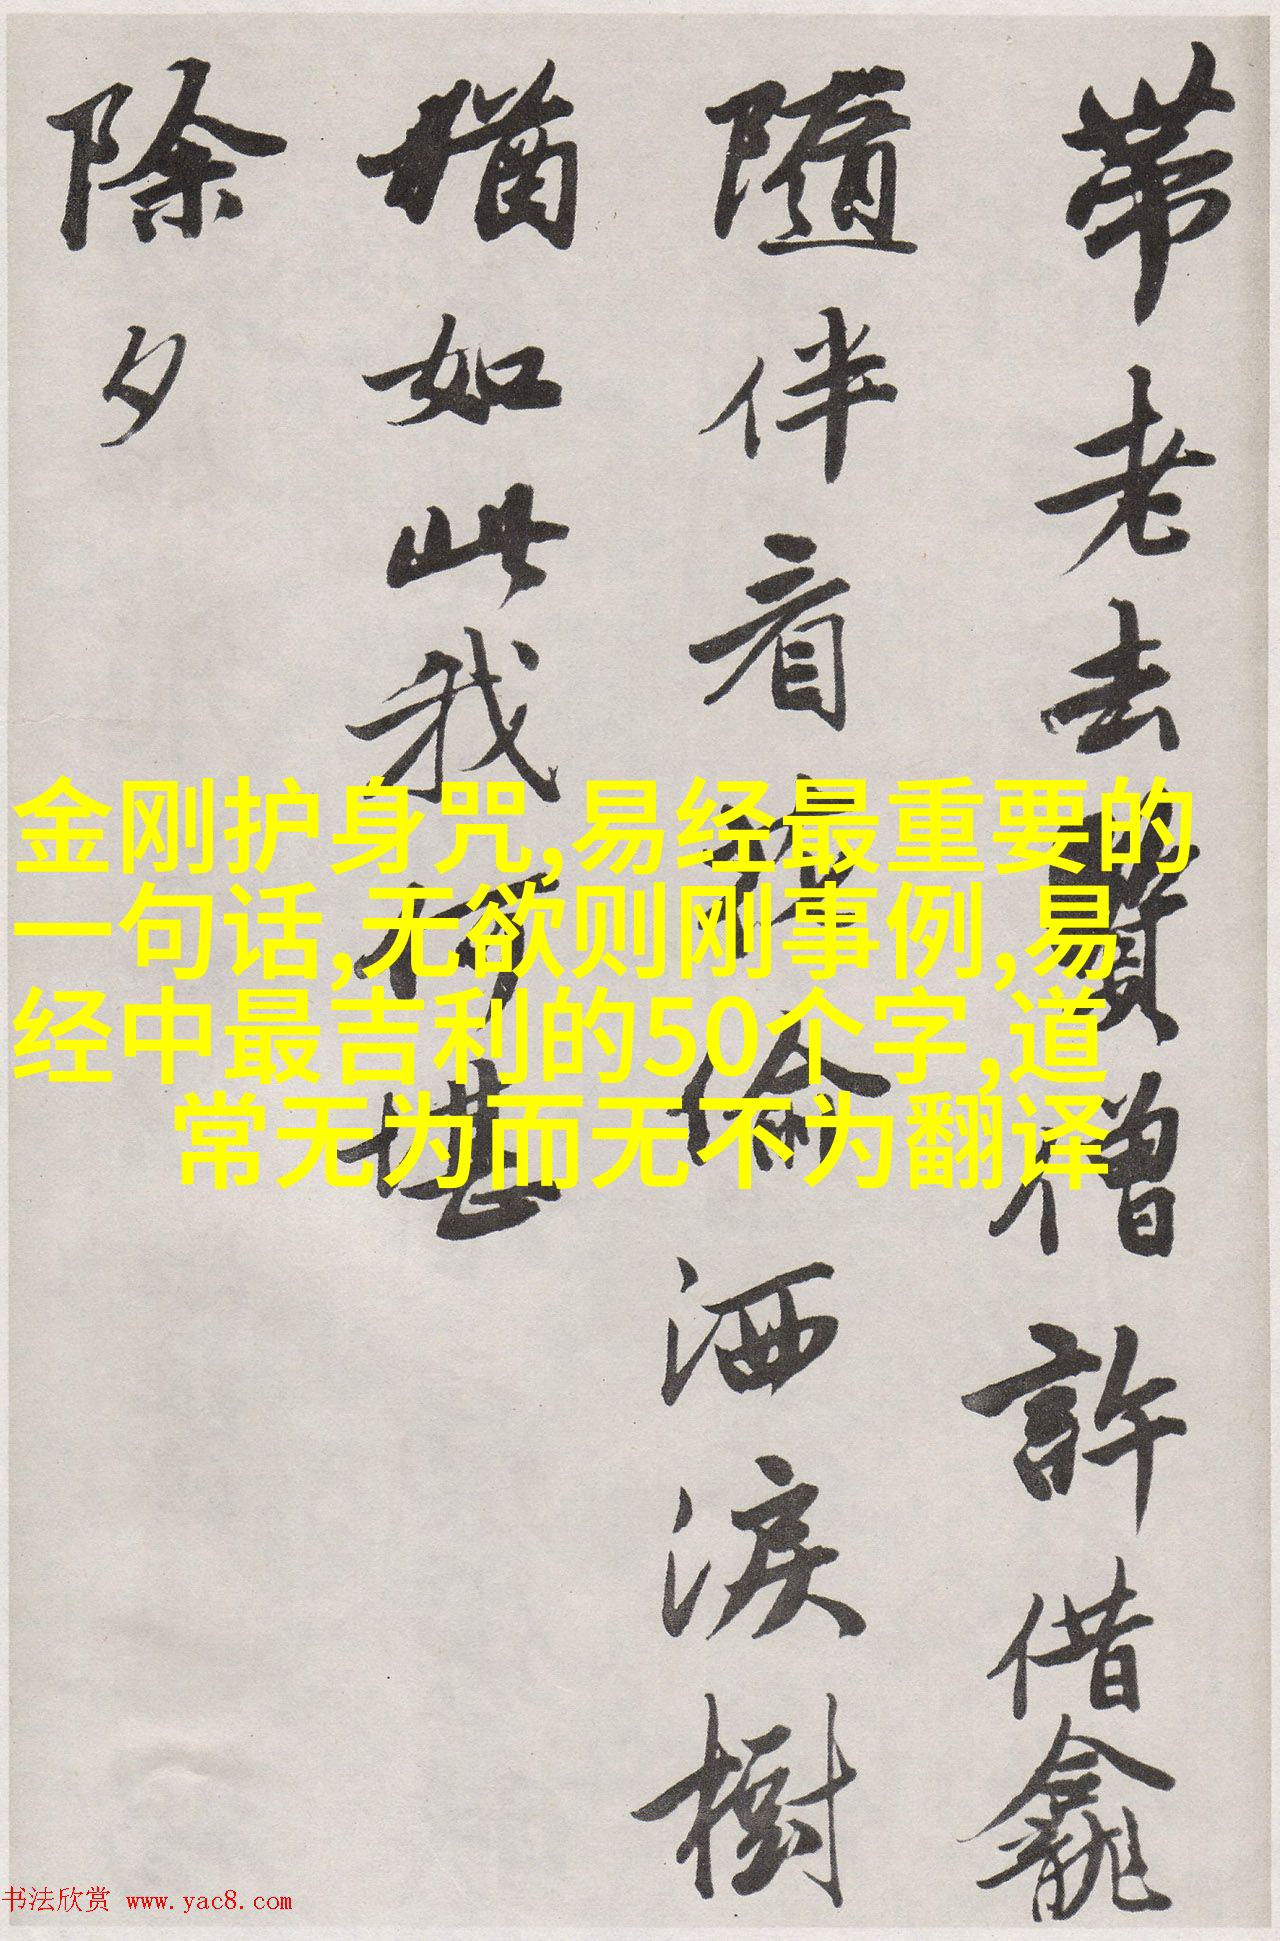 帶老去僧許借龕
隨伴看偷洒淚樹
猶如此我何堪
除夕
金刚护身咒,易经最重要的
一句话,无欲则刚事例,易
经中最吉利的50个字,道
常无为而无不为翻译
书法欣赏 www.yac8.com